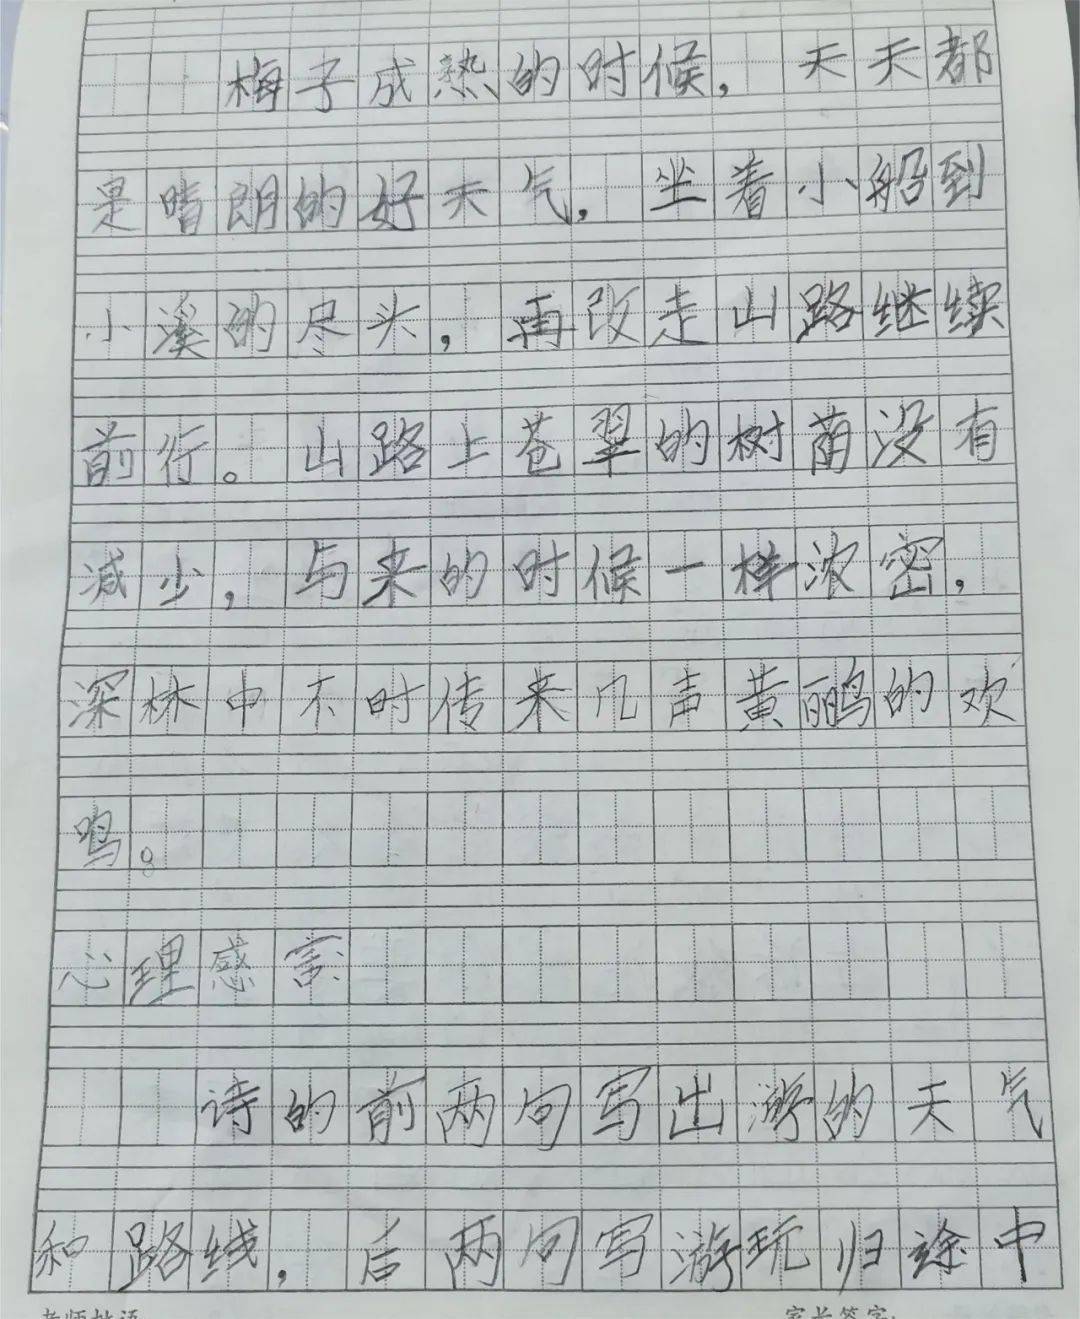 梅子成熟的时候，天天都
是晴朗的好天气，坐着小船到
小溪的尽头，再改走山路继续
前行。山路上苍翠的树荫没有
减少，与来的时候一样浓密，
深林中不时传来几声黄鹂的欢
鸣。
心理感言
诗的前两句写出游的天气
和路线，后两句写游玩归途中
老师批语 家长签字: